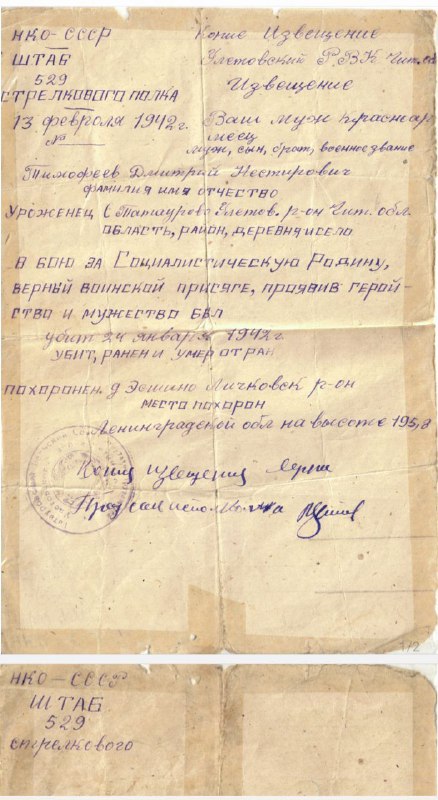 НКО-СССР
Копие Извещение
ШТАБ
Улетовский Р.В.К. Чит. об
529
Извещение
СТРЕЛКОВОГО ПОЛКА
13 февроля 1942г.
Ваш муж Красноар
№
меец
муж, сын, брат, военное звание
Тимофеев Дмитрий Нестирович
ФАМИЛИЯ ИМЯ ОТЧЕСТВО
УРОЖЕНЕЦ С Татаурово Улетов. р-он Чит. обл.
ОБЛАСТЬ, РАЙОН, ДЕРЕВНЯ И СЕЛО
В БОЮ ЗА СОЦИАЛИСТИЧЕСКУЮ РОДИНУ,
ВЕРНЫЙ ВОИНСКОЙ ПРИСЯГЕ, ПРОЯВИВ ГЕРОЙ-
СТВО И МУЖЕСТВО БЫЛ
убит 24 января 1942г.
УБИТ, РАНЕН И УМЕР ОТ РАН
ПОХОРОНЕН д Эсшино Лычковск р-он
МЕСТО ПОХОРОН
Ленинградской обл на высоте 195,8
Копия извещения верна
1/2
НКО-СССР
ШТАБ
529
стрелкового